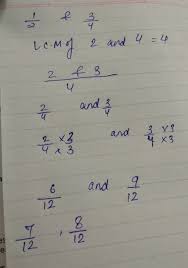 1/2 & 3/4
L.C.M of 2 and 4 = 4
2 & 3 / 4
2/4 and 3/4
2/4 × 3/3 and 3/4 × 3/3
6/12 and 9/12
7/12 , 8/12